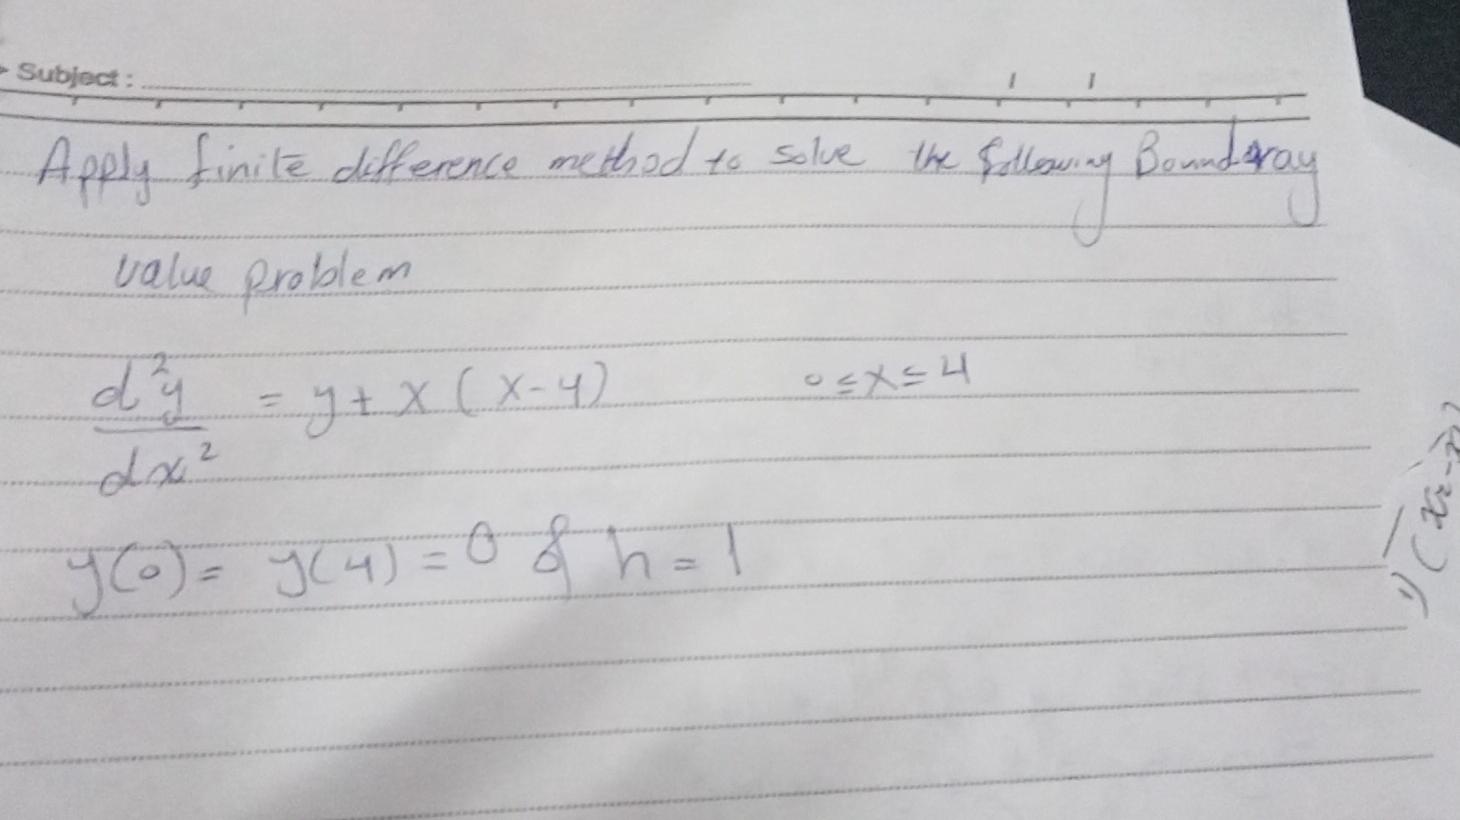 Subject:
Apply finite difference method to solve the following Bounderay
value problem
d²y/dx² = y + x(x-4) 0≤x≤4
y(0) = y(4) = 0 & h = 1